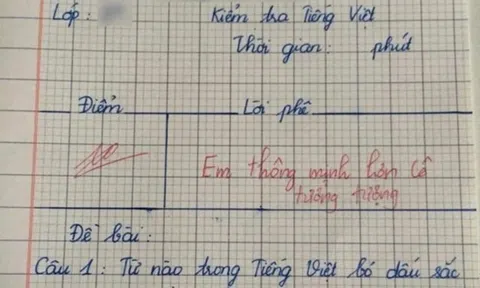 Lớp :
Kiểm tra Tiếng Việt
Thời gian : phút
Điểm
Lời phê
10
Em thông minh hơn cô
tưởng tượng
Đề bài :
Câu 1 : Từ nào trong Tiếng Việt bỏ dấu sắc